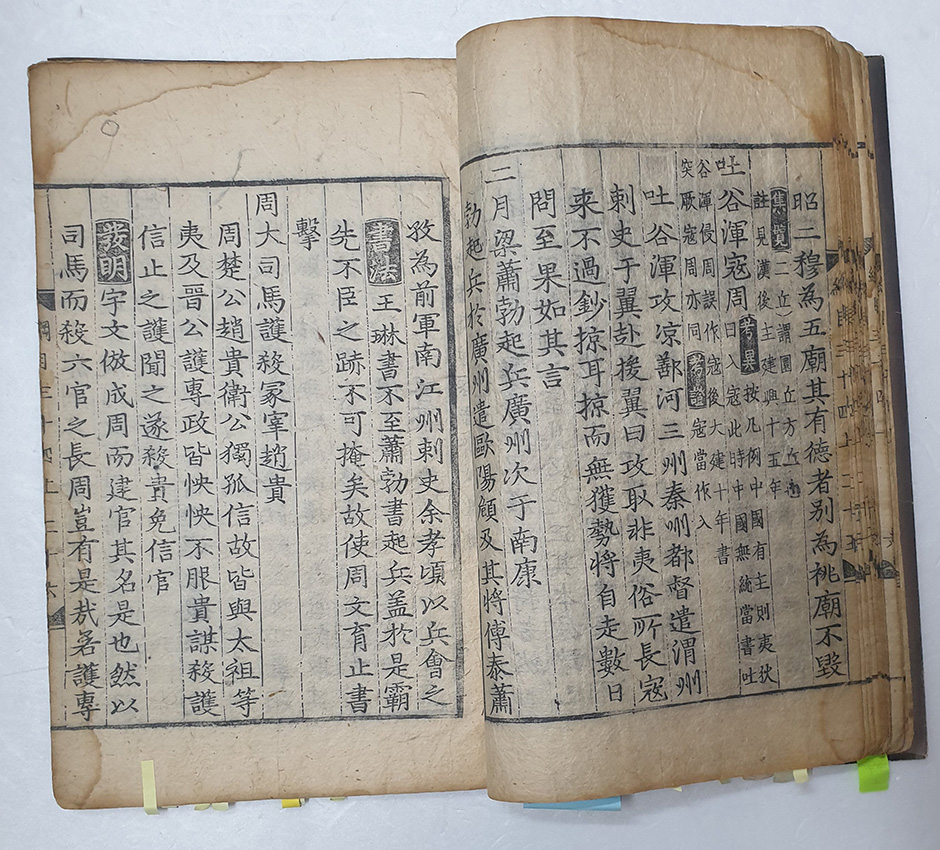 昭二穆為五廟其有德者別為祧廟不毀
集覽二丘謂圜丘方丘
註見漢後主建興十五年
吐谷渾寇周考異按凡例中國有主則夷狄
曰入寇此時中國無統當書吐
谷渾侵周誤作寇後大建十年書
突厥寇周亦同考證寇當作入
吐谷渾攻涼鄯河三州秦州都督遣渭州
刺史于翼赴後翼曰攻取非夷俗所長寇
来不過鈔掠耳掠而無獲勢將自走數日
問至果如其言
二月梁蕭勃起兵廣州次于南康
勃起兵於廣州遣歐陽頠及其將傅泰蕭
孜為前軍南江州刺史余孝頃以兵會之
書法王琳書不至蕭勃書起兵盖於是霸
先不臣之跡不可掩矣故使周文育止書
擊
周大司馬護殺冢宰趙貴
周楚公趙貴衛公獨孤信故皆與太祖等
夷及晋公護專政皆怏怏不服貴謀殺護
信止之護聞之遂殺貴免信官
發明宇文倣成周而建官其名是也然以
司馬而殺六官之長周豈有是㢤若護專